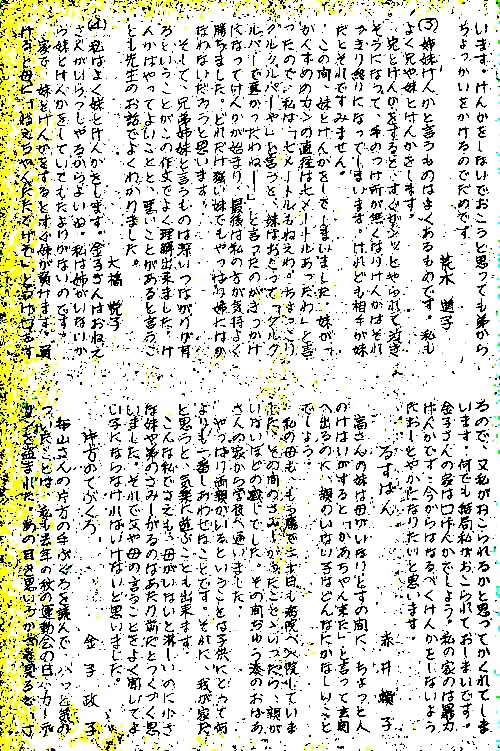 います。けんかをしないでおこうと思っても弟から
ちょっかいをかけるのでだめです。
(3) 荒木 道子
姉妹げんかと言うものはよくあるものです。私も
よく兄や妹とけんかをします。
兄とけんかをすると、すぐガンッとやられて泣き
そうになって、手のつけ所が無くなりけんかはそれ
っきり終りになってしまいます。けれども相手が妹
だとそれですみません。
この間、妹とけんかをしてしまいました。妹が「
がんすめのカンの直径は七メートルもあったわ」と言
ったので、私は「七メートルもねえわ。ちょっこり
クルクルパーや」と言うと、妹はおこって「クルク
ルパーで悪かったわねー」と言ったのがきっかけ
になってけんかが始まり、最後は私の方が気持よく
勝ちました。どれだけ強い妹でもやっぱり姉にはか
なわないだろうと思います。
そして、兄弟姉妹と言うものは深いつながりが有
るということがこの作文でよく理解出来ました。け
んかはやってよいことと、悪いことがあると言うこ
とも先生のお話でよくわかりました。
(4) 大橋 悦子
私はよく妹とけんかをします。金子さんはおねえ
さんがいらっしゃるからよいね。私は姉がいないか
ら妹とけんかをしていてもたよりがないのです。
家で、妹とけんかをするとすぐ妹が負けます。負
るので、又私がおこられるかと思ってかくれてしま
います。何でも結局私がおこられておしまいです。
金子さんの家は口けんかでしょう。私の家のは暴力
けんかです。今からはなるべくけんかをしないよう
だおーとやかになりたいと思います。
るすばん 赤井 順子
高さんの妹は母がいなかりとすの間に、ちょっと人
のけはいがすると「かあちゃん来た」と言って玄関
へ出るのに、親のいない子はどんなにかなしいこと
でしょう。
私の母も、もう席で二十日も病院へ入院していま
した。その間のさみしかったことといったら、親が
いないほどの感じでした。その間おゆう湊のおばあ
さんの家から学校へ通いました。
やっぱり両親がいるということは子供にとって何
よりも一番しあわせなことです。それに、我が家だ
と思うと、気楽に遊ぶことも出来ます。
こんな私でさえも、母がいないと淋しいのに小さ
な妹や弟のさみしがるのはあたり前だとつくづく思
いました。それで父や母の言うことをよく聞いてよ
い子にならなければいけないと思いました。
片方のてぶくろ 金子 政子
梅山さんの片方の手ぶくろを読んで、ハッと気の
ついたことは、私も去年の秋の運動会の日、カーデ